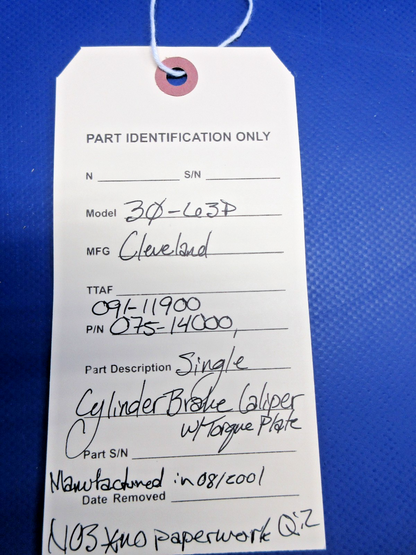 PART IDENTIFICATION ONLY
N ________ S/N ________
Model 30-63D
MFG Cleveland
TTAF ________
091-11900
P/N 075-14000,
Part Description Single
Cylinder Brake Caliper
w/Torque Plate
Part S/N ________
Manufactured in 08/2001
Date Removed ________
NO3 no paperwork